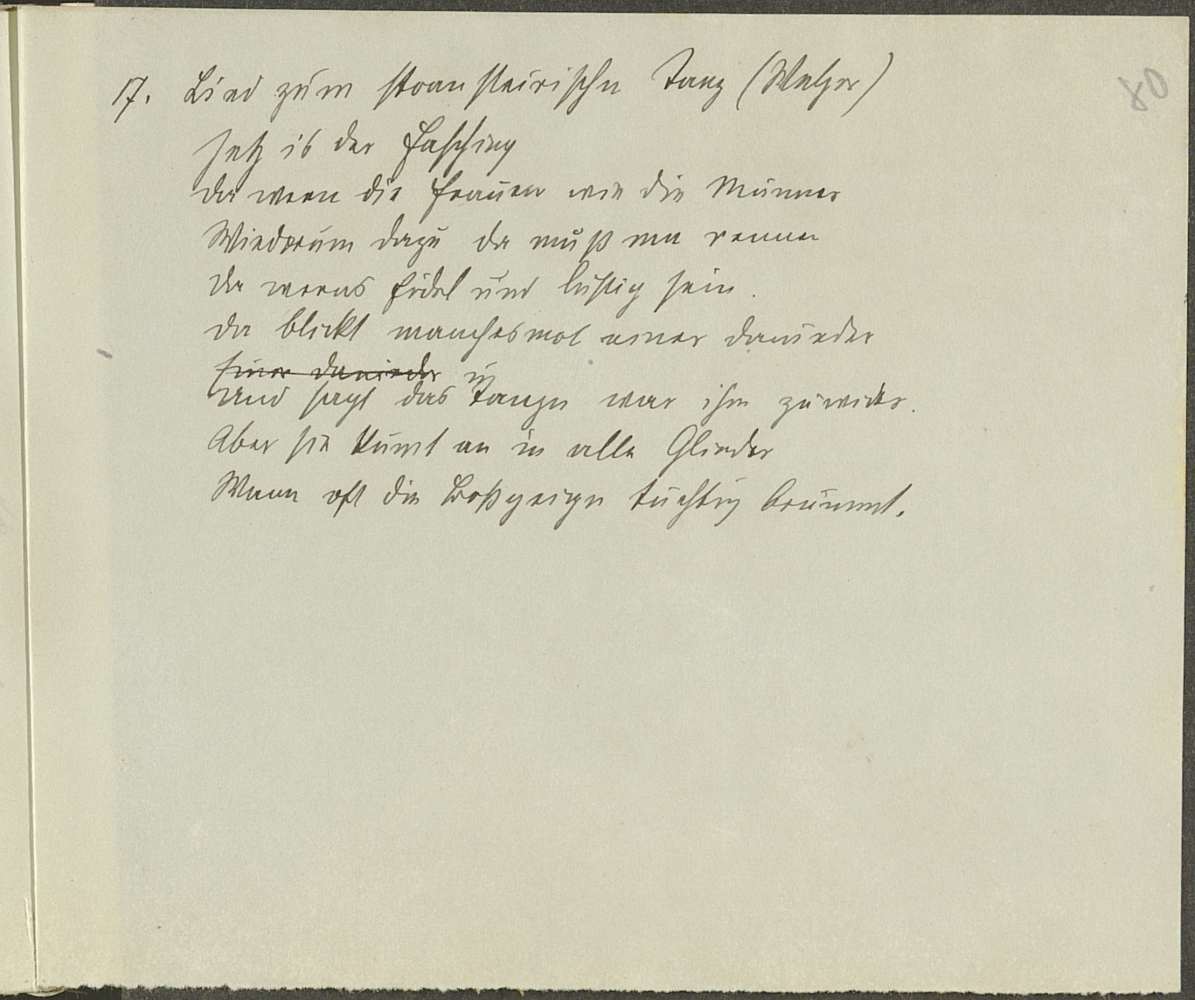 80
17. Lied zum stoansteirischn Tanz (Walzer)
Jetz is der Fasching
Da wern die Frauen wie die Männer
Wiederum dazu da muß ma renna
Da werns fidel und lustig sein.
Da blickt manchesmol einer danieder
Einer danieder in
und sagt das Tanzn war ihm zuwider.
Aber sie kümt an in alle Glieder
Wann oft die Boßgeign tüchtig brummt.